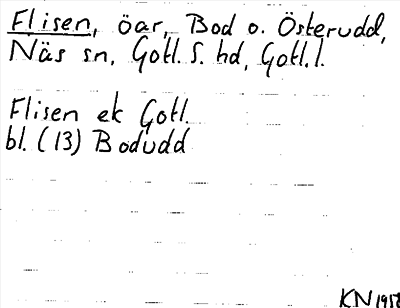 Flisen, öar, Bod o. Österudd,
Näs sn, Gotl. S. hd, Gotl. l.
Flisen ek Gotl.
bl. (13) Bodudd
KN